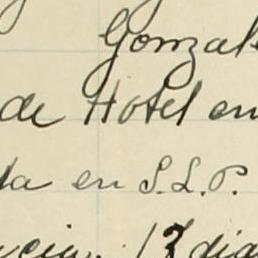 Gonzal
de Hotel en
da en S.L.P.
ncia. 13 dia